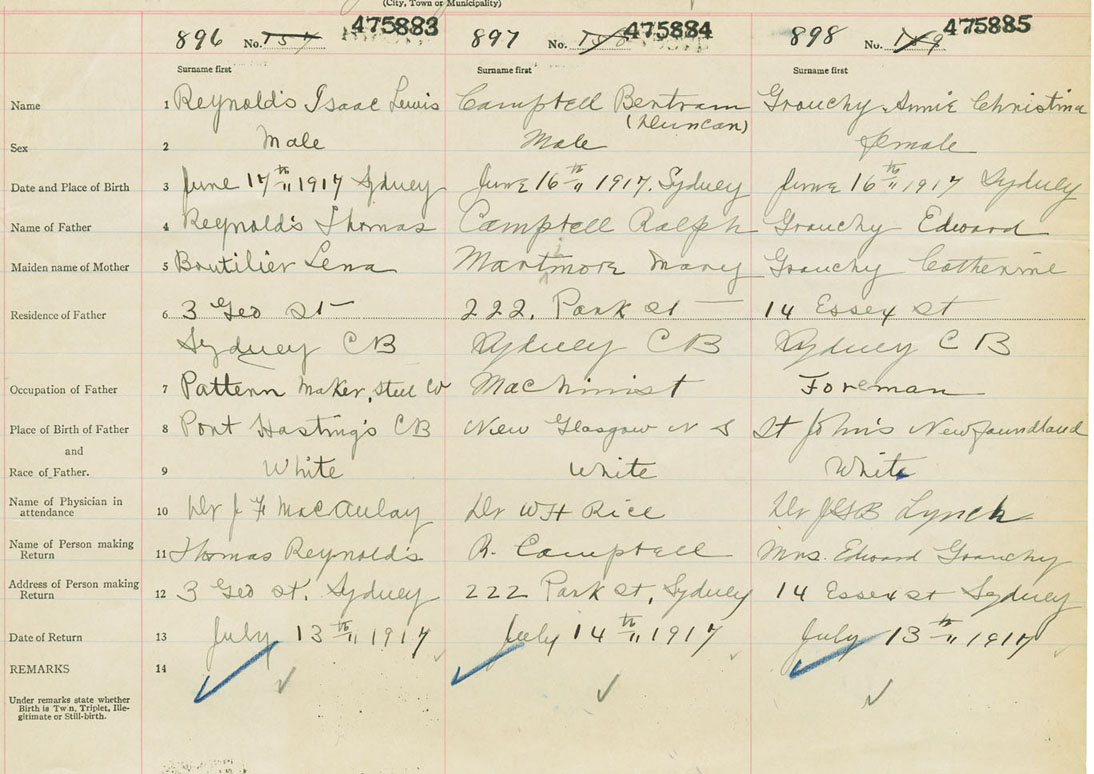 (City, Town or Municipality)
896 No. 475883 897 No. 475884 898 No. 475885
Surname first Surname first Surname first
Name 1 Reynolds Isaac Lewis Campbell Bertram Grouchy Annie Christina
(Duncan)
Sex 2 Male Male female
Date and Place of Birth 3 June 17th " 1917 Sydney June 16th " 1917. Sydney June 16th " 1917 Sydney
Name of Father 4 Reynolds Thomas Campbell Ralph Grouchy Edward
Maiden name of Mother 5 Boutilier Lena Mary Grouchy Catherine
Residence of Father 6 3 Geo St 222, Park St 14 Essex St
Sydney CB Sydney CB Sydney CB
Occupation of Father 7 Pattern Maker, Steel Co Machinist Foreman
Place of Birth of Father 8 Port Hastings CB New Glasgow N S St John's Newfoundland
and
Race of Father. 9 White White White
Name of Physician in
attendance 10 Dr J F MacAulay Dr WH Rice Dr JGB Lynch
Name of Person making
Return 11 Thomas Reynolds R. Campbell Mrs. Edward Grouchy
Address of Person making
Return 12 3 Geo St. Sydney 222 Park St, Sydney 14 Essex St Sydney
Date of Return 13 July 13th " 1917 July 14th " 1917 July 13th " 1917
REMARKS 14
Under remarks state whether
Birth is Twin, Triplet, Ille-
gitimate or Still-birth.